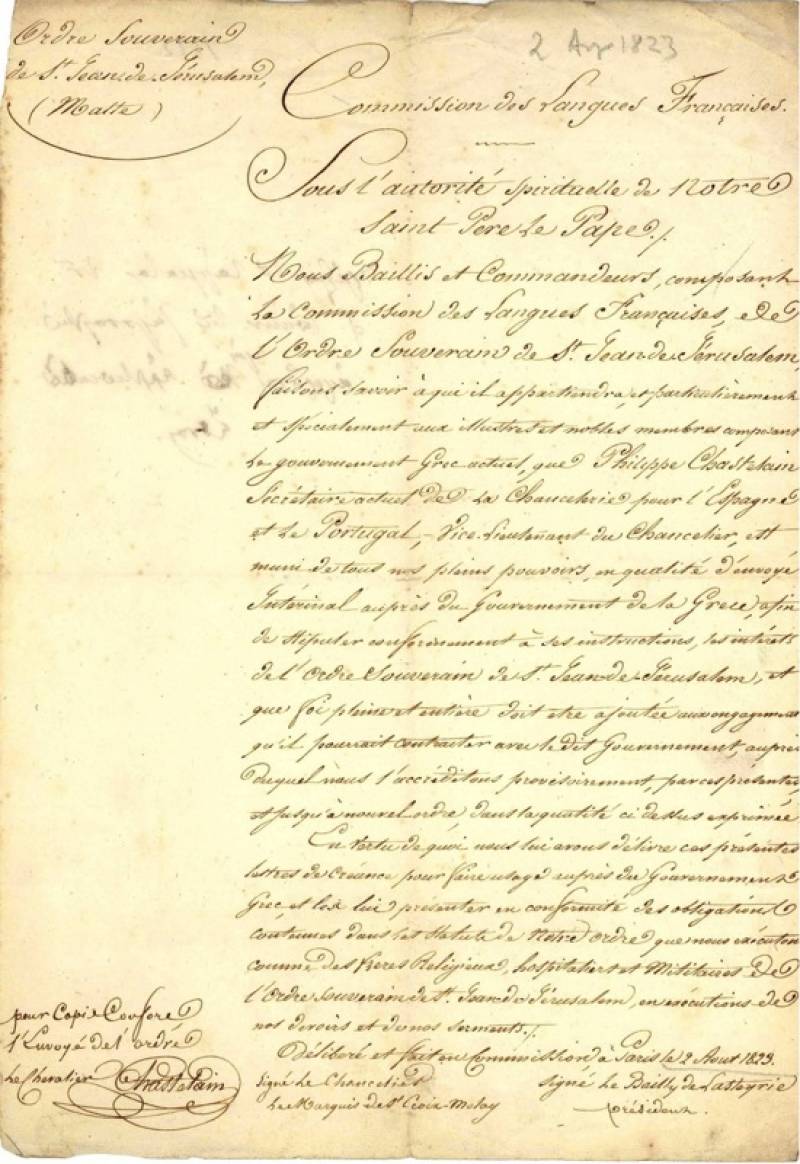 Ordre Souverain
de St. Jean-de-Jérusalem,
(Malte)
2 Aug 1823
Commission des Langues Françaises.
Sous l'autorité spirituelle de Notre
Saint Père Le Pape./.
Nous Baillis et Commandeurs, composant
La Commission des Langues Françaises, de
l'Ordre Souverain de St. Jean-de-Jérusalem,
faisons savoir à qui il appartiendra, et particulièrement
et spécialement aux illustres et nobles membres composant
Le gouvernement Grec actuel, que Philippe Chastelain
Secrétaire actuel de La Chancelerie pour l'Espagne
et Le Portugal, Vice-Lieutenant du Chancelier, est
muni de tous nos pleins pouvoirs, en qualité d'envoyé
Interinal auprès du Gouvernement de la Grece, afin
de stipuler conformément à ses instructions, les intérêts
de l'Ordre Souverain de St. Jean-de-Jérusalem, et
que foi pleine et entière doit etre ajoutée aux engagemens
qu'il pourrait contracter avec le dit Gouvernement, auprès
duquel nous l'accréditons provisoirement, par ces présentes,
et jusqu'à nouvel ordre dans la qualité ci dessus exprimée
En vertu de quoi nous lui avons délivré ces présentes
lettres de Créance pour faire usage auprès du Gouvernement
Grec, et les lui présenter en conformité des obligations
contenues dans les Statuts de Notre ordre que nous exécutons
comme des Freres Religieux, hospitaliers et Militaires de
l'Ordre Souverain de St. Jean-de-Jérusalem, en exécutions de
nos devoirs et de nos serments./.
Délibéré et fait en Commission à Paris le 2 Aout 1823.
signé Le Chancelier
Le Marquis de St. Croix-Molay
signé Le Bailly de Lasteyrie
président.
pour Copie Confore
l'Envoyé de l'ordre
Le Chevalier Chastelain